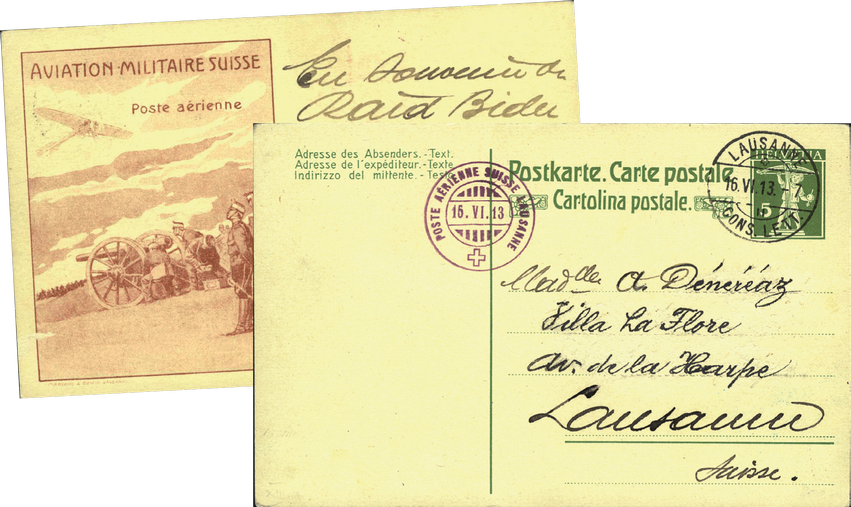 AVIATION·MILITAIRE SUISSE
Poste aérienne
En Souvenir du
Raid Bider
Adresse des Absenders.-Text.
Adresse de l'expéditeur.-Texte.
Indirizzo del mittente.-Testo
Postkarte. Carte postale.
Cartolina postale.
POSTE AÉRIENNE SUISSE LAUSANNE
16.VI.13
LAUSANNE
16.VI.13.-7
CONS. LETT.
HELVETIA
5
Madlle A. Dénéréaz
Villa La Flore
Av. de la Harpe
Lausanne
Suisse.